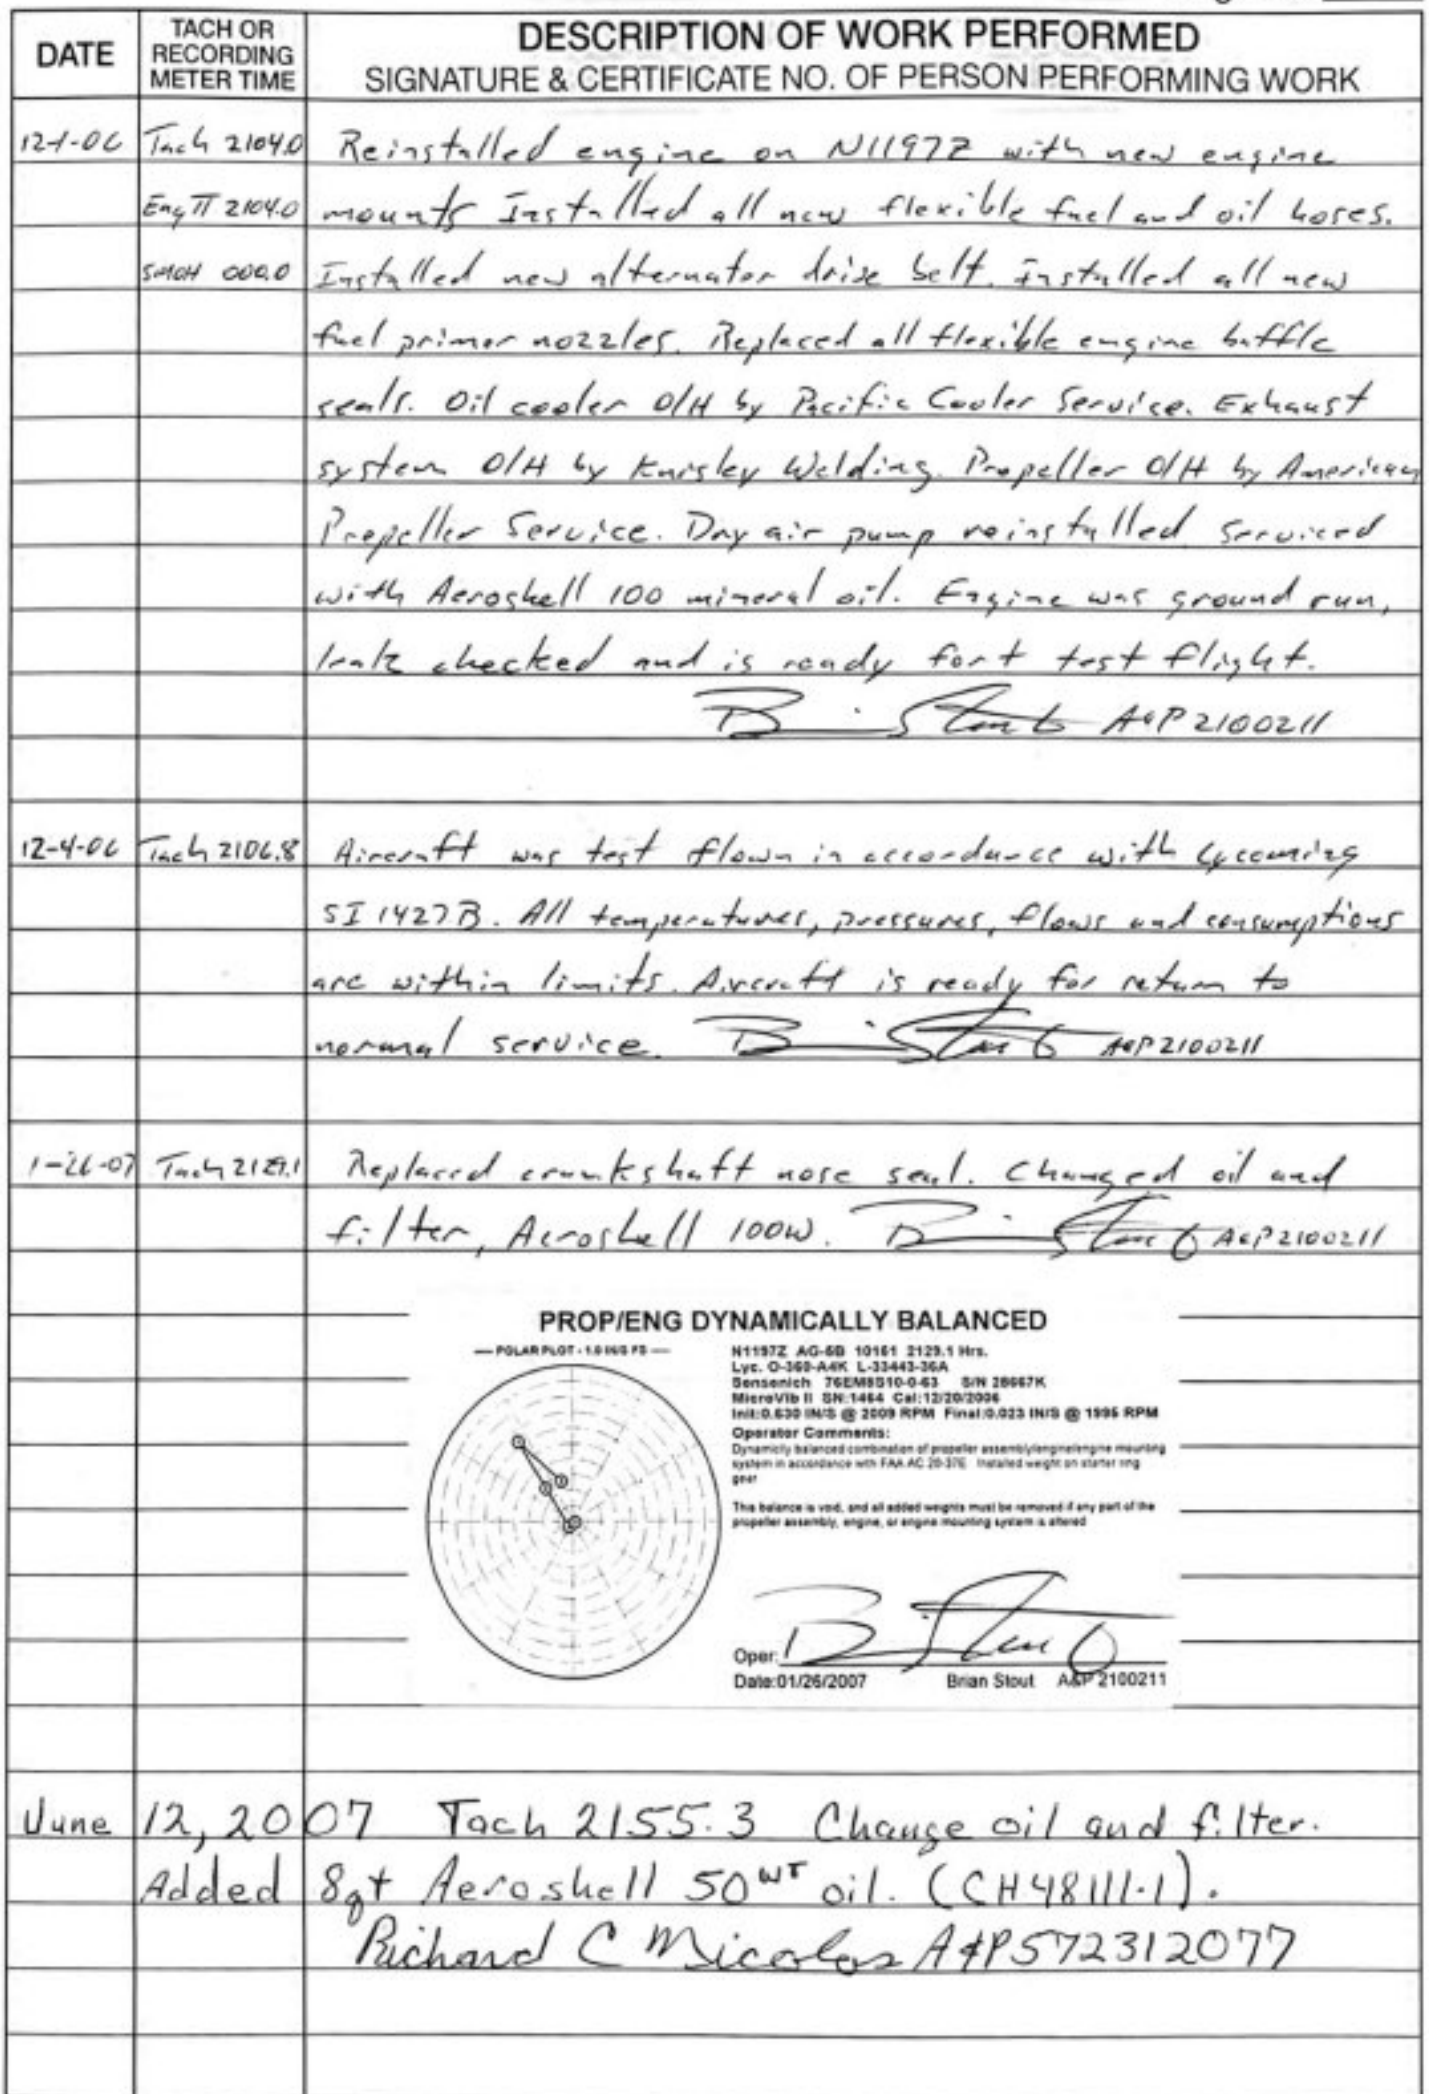 DATE
TACH OR
RECORDING
METER TIME
DESCRIPTION OF WORK PERFORMED
SIGNATURE & CERTIFICATE NO. OF PERSON PERFORMING WORK
12-1-06 Tach 2104.0 Reinstalled engine on N1197Z with new engine
Eng TT 2104.0 mounts Installed all new flexible fuel and oil hoses.
SMOH 000.0 Installed new alternator drive belt. Installed all new
fuel primer nozzles. Replaced all flexible engine baffle
seals. Oil cooler O/H by Pacific Cooler Service. Exhaust
system O/H by Knisley Welding. Propeller O/H by American
Propeller Service. Dry air pump reinstalled. Serviced
with Aeroshell 100 mineral oil. Engine was ground run,
leak checked and is ready fort test flight.
Brian Stout A&P 2100211
12-4-06 Tach 2106.8 Aircraft was test flown in accordance with Lycoming
SI 1427B. All temperatures, pressures, flows and consumptions
are within limits. Aircraft is ready for return to
normal service. Brian Stout A&P 2100211
1-26-07 Tach 2129.1 Replaced crankshaft nose seal. Changed oil and
filter, Aeroshell 100W. Brian Stout A&P 2100211
PROP/ENG DYNAMICALLY BALANCED
POLAR PLOT - 1.0 IN/S FS
N1197Z AG-5B 10161 2129.1 Hrs.
Lyc. O-360-A4K L-33443-36A
Sensenich 76EM8S10-0-63 S/N 28667K
MicroVib II SN:1464 Cal:12/20/2006
Init:0.630 IN/S @ 2009 RPM Final:0.023 IN/S @ 1995 RPM
Operator Comments:
Dynamicly balanced combination of propeller assembly/engine/engine mounting
system in accordance with FAA AC 20-37E Installed weight on starter ring
gear
This balance is void, and all added weights must be removed if any part of the
propeller assembly, engine, or engine mounting system is altered
Oper: Brian Stout
Date:01/26/2007 Brian Stout A&P 2100211
June 12, 2007 Tach 2155.3 Change oil and filter.
Added 8qt Aeroshell 50WT oil. (CH48111-1).
Richard C Micolas A&P572312077